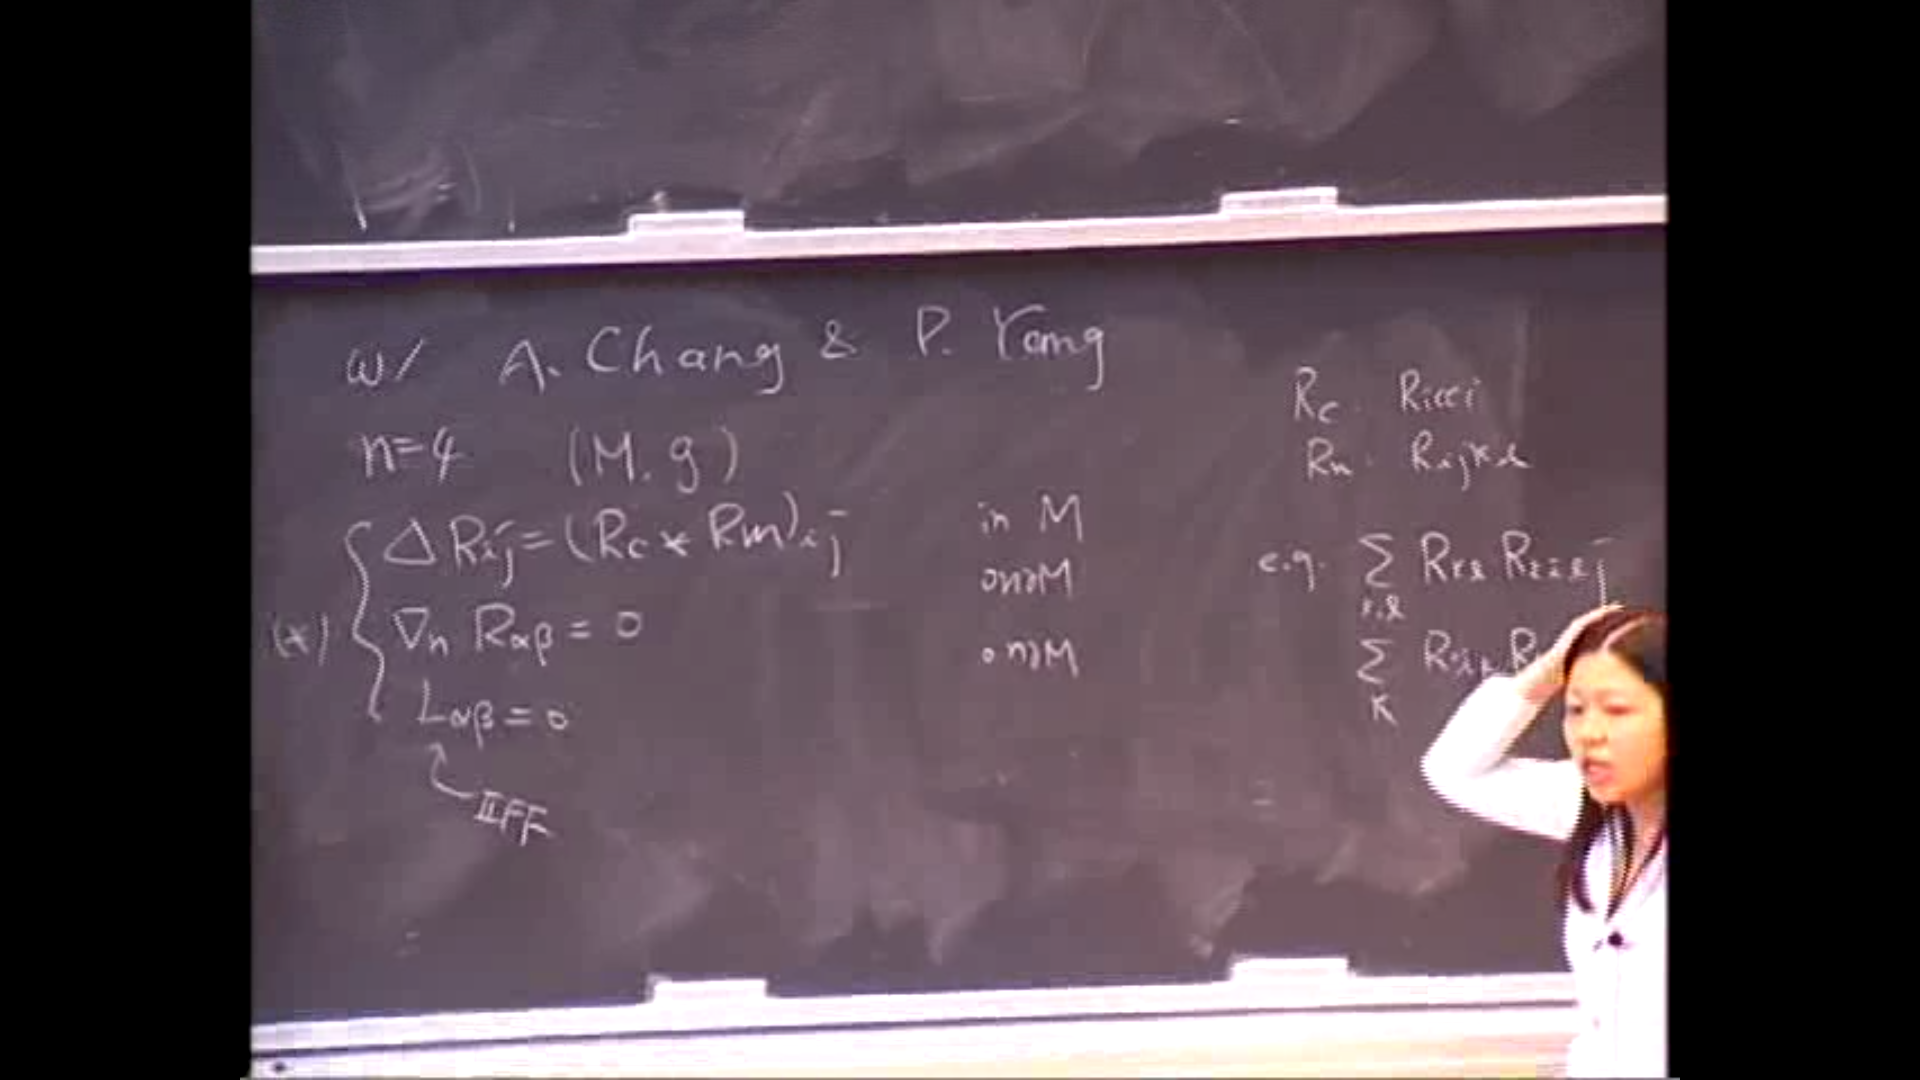 w/ A. Chang & P. Yang
n=4 (M. g)
(*) { Δ Rij = (Rc * Rm)ij in M
∇n Rαβ = 0 on ∂M
Lαβ = 0 on ∂M
IIFF
Rc. Ricci
Rm. Rijkl
e.g. Σ
Σ
k